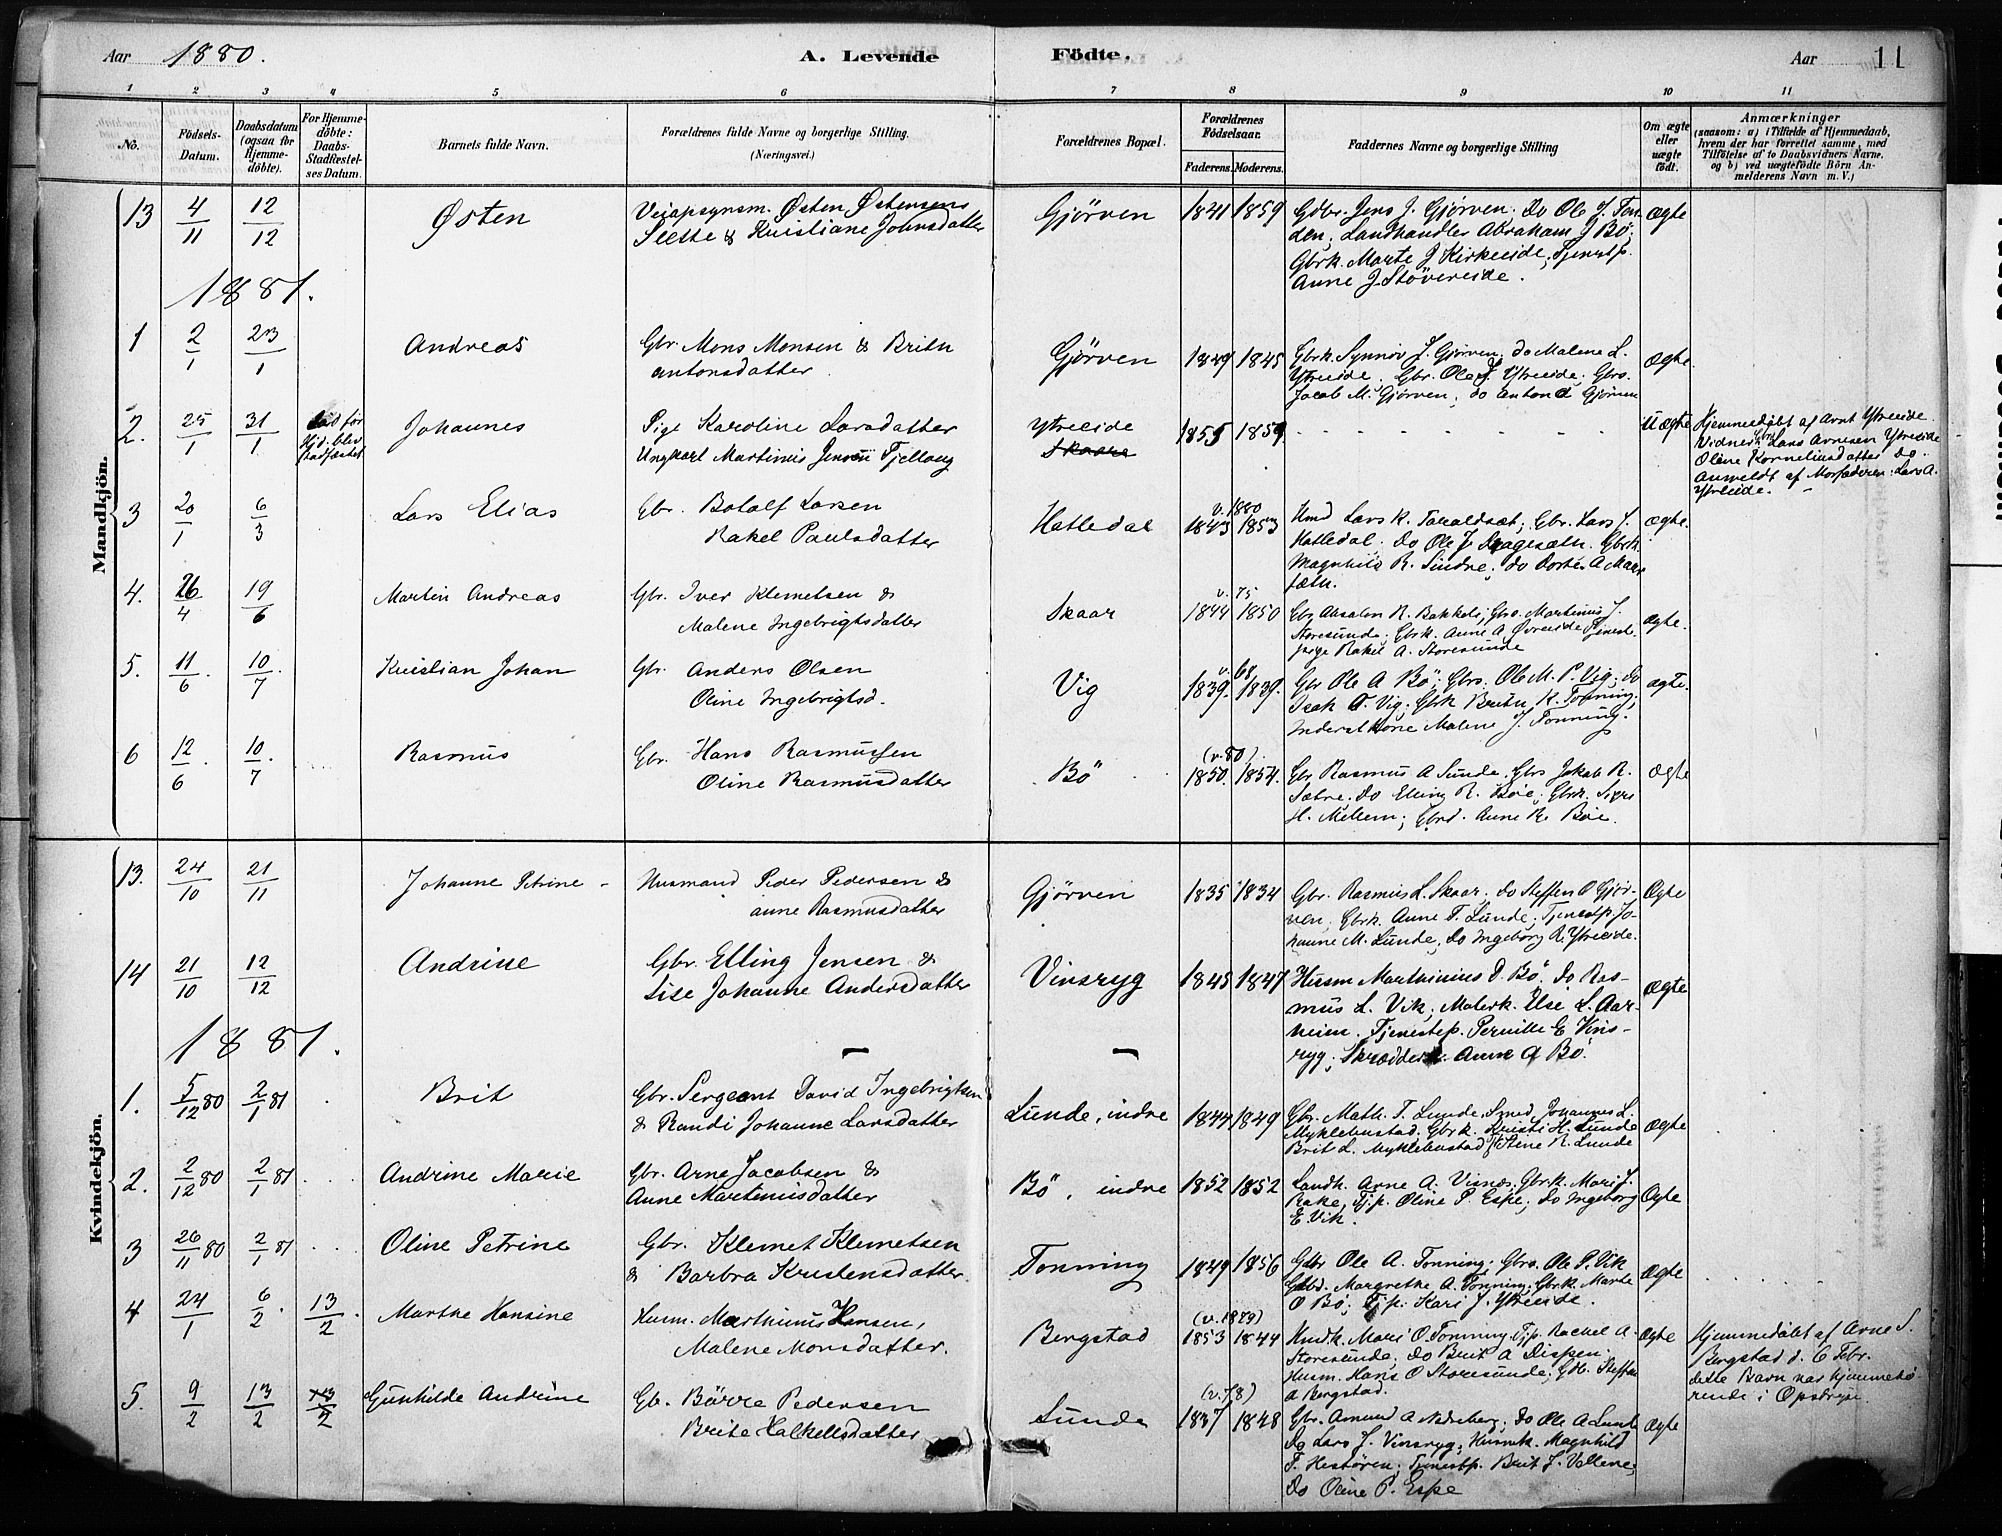 Aar 1880. A. Levende Födte. Aar 11
1 2 3 4 5 6 7 8 9 10 11
No. Födsels-Datum. Daabsdatum (ogsaa for Hjemmedöbte). For Hjemmedöbte: Daabs-Stadfæstelses Datum. Barnets fulde Navn. Forældrenes fulde Navne og borgerlige Stilling. (Næringsvei.) Forældrenes Bopæl. Forældrenes Födselsaar. Faderens. Moderens. Faddernes Navne og borgerlige Stilling Om ægte eller uægte födt. Anmærkninger (saasom: a) i Tilfælde af Hjemmedaab, hvem der har forrettet samme, med Tilföielse af to Daabsvidners Navne, og b) ved uægtefödte Börn Anmelderens Navn m. V.)
Mandkjön.
13 4/11 12/12 Østen Veiopsynsm. Østen Østensens
Slette & Kristiane Johnsdatter Gjörven 1841 1859 Gdbr. Jens J. Gjörven; do Ole J. Ton-
den; Landhandler Abraham J Bö;
Gbrk. Marte J Kirkeeide; Tjenestp.
Anne J. Stövereide. Ægte
1881.
1 2/1 23/1 Andreas Gbr. Mons Monsen & Brithe
Antonsdatter Gjörven 1849 1845 Gbrk. Synnöv J. Gjörven; do Malene L.
Ytreeide; Gbr. Ole J. Ytreeide; Gbrs.
Jacob M. Gjörven; do Anton L Gjörven Ægte.
2. 25/1 31/1 död för
Hjd. blev
stadfæstet Johannes Pige Karoline Larsdatter
Ungkarl Martinus Jensen Fjellaug Ytreeide
Skaare 1855 1859 - - - - - - Uægte Hjemmedöbt af Arnt Ytreeide
Vidner: Gbr Lars Arnesen Ytreeide
Oline Korneliusdatter do.
Anmeldt af Morfaderen: Lars A.
Ytreeide.
3 20/1 6/3 Lars Elias Gbr. Botolf Larsen
Rakel Paulsdatter Hatledal v. 1880
1843 1853 Kmd Lars R. Taraldset; Gbr. Lars J.
Hatledal; do Ole J. Dragesæth; Gbrk.
Magnhild R. Sindre; do Dorthe A Maar
sæth. Ægte.
4. 26/4 19/6 Martin Andreas Gbr. Iver Klemetsen &
Malene Ingebrigtsdatter Skaar v. 75
1844 1850 Gbr Absalon R. Bakkeli; Gbrs. Martinus J.
Storesunde; Gbrk. Anne A Övreeide Tjenest-
pige Rakel A. Storesunde ægte.
5. 11/6 10/7 Kristian Johan Gbr. Anders Olsen
Oline Ingebrigtsd. Vig v. 68
1839. 1839. Gbr Ole A Bö; Gbrs. Ole M. P. Vig; do
Isak T. Vig; Gbrk Brithe K. Tonning;
Inderstkone Malene J. Tonning. ægte.
6 12/6 10/7 Rasmus Gbr. Hans Rasmussen
Oline Rasmusdatter Bö (v. 80)
1850. 1854. Gbr Rasmus A Sunde; Gbrs Jakob R.
Sætre; do Elling R. Böe; Gbrk. Sigri
H. Mellem; Gbrd. Anne R. Böe. ægte
Kvindekjön.
13. 24/10 21/11 Johanne Petrine Husmand Peder Pedersen &
Anne Rasmusdatter Gjörven 1835 1834 Gbr. Rasmus L. Skaar; do Steffen O Gjör-
ven; Gbrk. Anne T. Lunde; Tjenestp. Jo-
hanne M. Lunde; do Ingeborg R. Ytreeide. Ægte
14 21/10 12/12 Andrine Gbr. Elling Jensen &
Lise Johanne Andersdatter Vinsryg 1845 1847 Husm Marthinius D. Bö; do Ras-
mus L. Vik; Malerk. Else L. Aar-
heim; Tjenestep. Pernille E Vins-
ryg; Skrædder Anne A Bö. Ægte
1881.
1. 5/12 80 2/1 81 Brit Gbr. Sergeant David Ingebrigtsen
& Randi Johanne Larsdatter Lunde, indre 1844 1849 Gbr. Math. T. Lunde; Smed Johannes L.
Myklebustad; Gbrk. Kristi H. Lunde
Brit L. Myklebustad; Stene R. Lunde Ægte
2. 2/12 80 2/1 81 Andrine Marie Gbr. Arne Jacobsen &
Anne Martinusdatter Bö, indre 1852 1852 Landh. Arne A. Visnes; Gbrk. Mari J.
Rake; Tjp. Oline P. Espe; do Ingeborg
E. Vik. Ægte
3 26/11 80 2/1 81 Oline Petrine Gbr. Klemet Klemetsen
& Barbra Kristensdatter. Tonning 1849 1856 Gdbr Ole A. Tonning; Gbrs. Ole P. Vik
Gbd. Margrethe A. Tonning; Gbrk. Marte
O Bö; Tjp. Kari J. Ytreeide. Ægte
4 24/1 6/2 13/2 Marthe Hansine Husm. Marthinus Hansen,
Malene Monsdatter. Bergstad (v. 1879)
1853 1844 Kmdk. Mari O. Tonning; Tjp. Rachel A-
Storesunde; do Brit A Dispen.
Husm. Hans O Storesunde; Gdb. Steffen
A Bergstad. Ægte Hjemmedöbt af Arne S.
Bergstad d. 6 Febr.
dette Barn var hjemmehö-
rende i Opstryn.
5. 9/2 13/2 Gunhilde Andrine Gbr. Börre Pedersen
Brite Halkellsdatter Sunde (v. 78)
1837 1848 Gbr. Amund A Nedreberg; do Ole A Lunde
do Lars J. Vinsryg; Husmk. Magnhild
T. Hestören; Tjenestp. Brit J. Vollene;
do Oline P. Espe Ægte